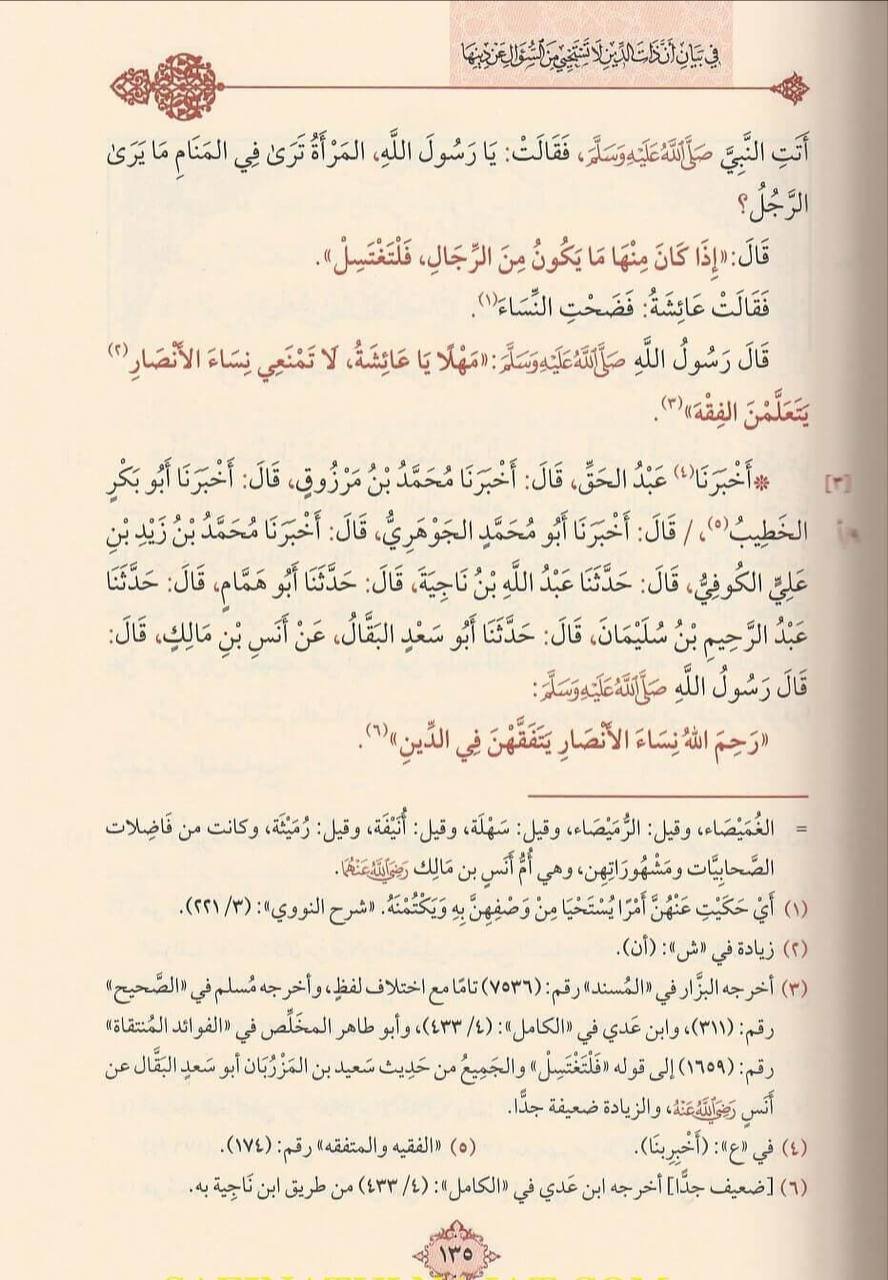 في بَيَانِ أَنَّ ذَاتَ الدِّينِ لَا تَسْتَحْيِي مِنَ السُّؤَالِ عَنْ دِينِهَا
أَتَتِ النَّبِيَّ صَلَّى اللَّهُ عَلَيْهِ وَسَلَّمَ، فَقَالَتْ: يَا رَسُولَ اللَّهِ، المَرْأَةُ تَرَىٰ فِي المَنَامِ مَا يَرَىٰ
الرَّجُلُ؟
قَالَ: «إِذَا كَانَ مِنْهَا مَا يَكُونُ مِنَ الرِّجَالِ، فَلْتَغْتَسِلْ».
فَقَالَتْ عَائِشَةُ: فَضَحْتِ النِّسَاءَ(١).
قَالَ رَسُولُ اللَّهِ صَلَّى اللَّهُ عَلَيْهِ وَسَلَّمَ: «مَهْلًا يَا عَائِشَةُ، لَا تَمْنَعِي نِسَاءَ الأَنْصَارِ(٢)
يَتَعَلَّمْنَ الفِقْهَ»(٣).
[٣] * أَخْبَرَنَا(٤) عَبْدُ الحَقِّ، قَالَ: أَخْبَرَنَا مُحَمَّدُ بْنُ مَرْزُوقٍ، قَالَ: أَخْبَرَنَا أَبُو بَكْرٍ
الخَطِيبُ(٥)، / قَالَ: أَخْبَرَنَا أَبُو مُحَمَّدٍ الجَوْهَرِيُّ، قَالَ: أَخْبَرَنَا مُحَمَّدُ بْنُ زَيْدِ بْنِ
عَلِيٍّ الكُوفِيُّ، قَالَ: حَدَّثَنَا عَبْدُ اللَّهِ بْنُ نَاجِيَةَ، قَالَ: حَدَّثَنَا أَبُو هَمَّامٍ، قَالَ: حَدَّثَنَا
عَبْدُ الرَّحِيمِ بْنُ سُلَيْمَانَ، قَالَ: حَدَّثَنَا أَبُو سَعْدٍ البَقَّالُ، عَنْ أَنَسِ بْنِ مَالِكٍ، قَالَ:
قَالَ رَسُولُ اللَّهِ صَلَّى اللَّهُ عَلَيْهِ وَسَلَّمَ:
«رَحِمَ اللهُ نِسَاءَ الأَنْصَارِ يَتَفَقَّهْنَ فِي الدِّينِ»(٦).
= الغُمَيْصَاء، وقيل: الرُّمَيْصَاء، وقيل: سَهْلَة، وقيل: أُنَيْفَة، وقيل: رُمَيْثَة، وكانت من فَاضِلات
الصَّحابِيَّات ومَشْهُورَاتِهِن، وهي أُمُّ أَنَسِ بن مَالِك رَضِيَ اللَّهُ عَنْهُمَا.
(١) أَيْ حَكَيْتِ عَنْهُنَّ أَمْرًا يُسْتَحْيَا مِنْ وَصْفِهِنَّ بِهِ وَيَكْتُمْنَهُ. «شرح النووي»: (٣/ ٢٢١).
(٢) زيادة في «ش»: (أن).
(٣) أخرجه البزَّار في «المُسند» رقم: (٧٥٣٦) تامًا مع اختلاف لفظٍ، وأخرجه مُسلم في «الصَّحيح»
رقم: (٣١١)، وابن عَدي في «الكامل»: (٤/ ٤٣٣)، وأبو طاهر المخلِّص في «الفوائد المُنتقاة»
رقم: (١٦٥٩) إلى قوله «فَلْتَغْتَسِلْ» والجَمِيعُ من حَدِيث سَعيد بن المَرْزُبَان أبو سَعدٍ البَقَّال عن
أَنَسٍ رَضِيَ اللَّهُ عَنْهُ، والزيادة ضعيفة جدًّا.
(٤) في «ع»: (أَخْبِرِينَا). (٥) «الفقيه والمتفقه» رقم: (١٧٤).
(٦) [ضعيف جدًّا] أخرجه ابن عَدي في «الكامل»: (٤/ ٤٣٣) من طريق ابن نَاجِية به.
١٣٥